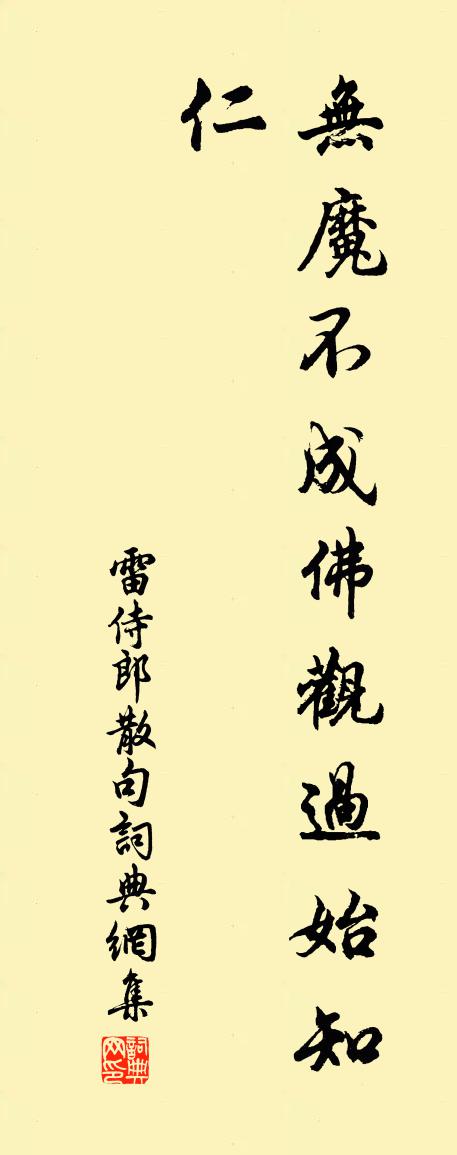 無魔不成佛觀過始知
仁
雷侍郎散句詞典網集
詞典网印